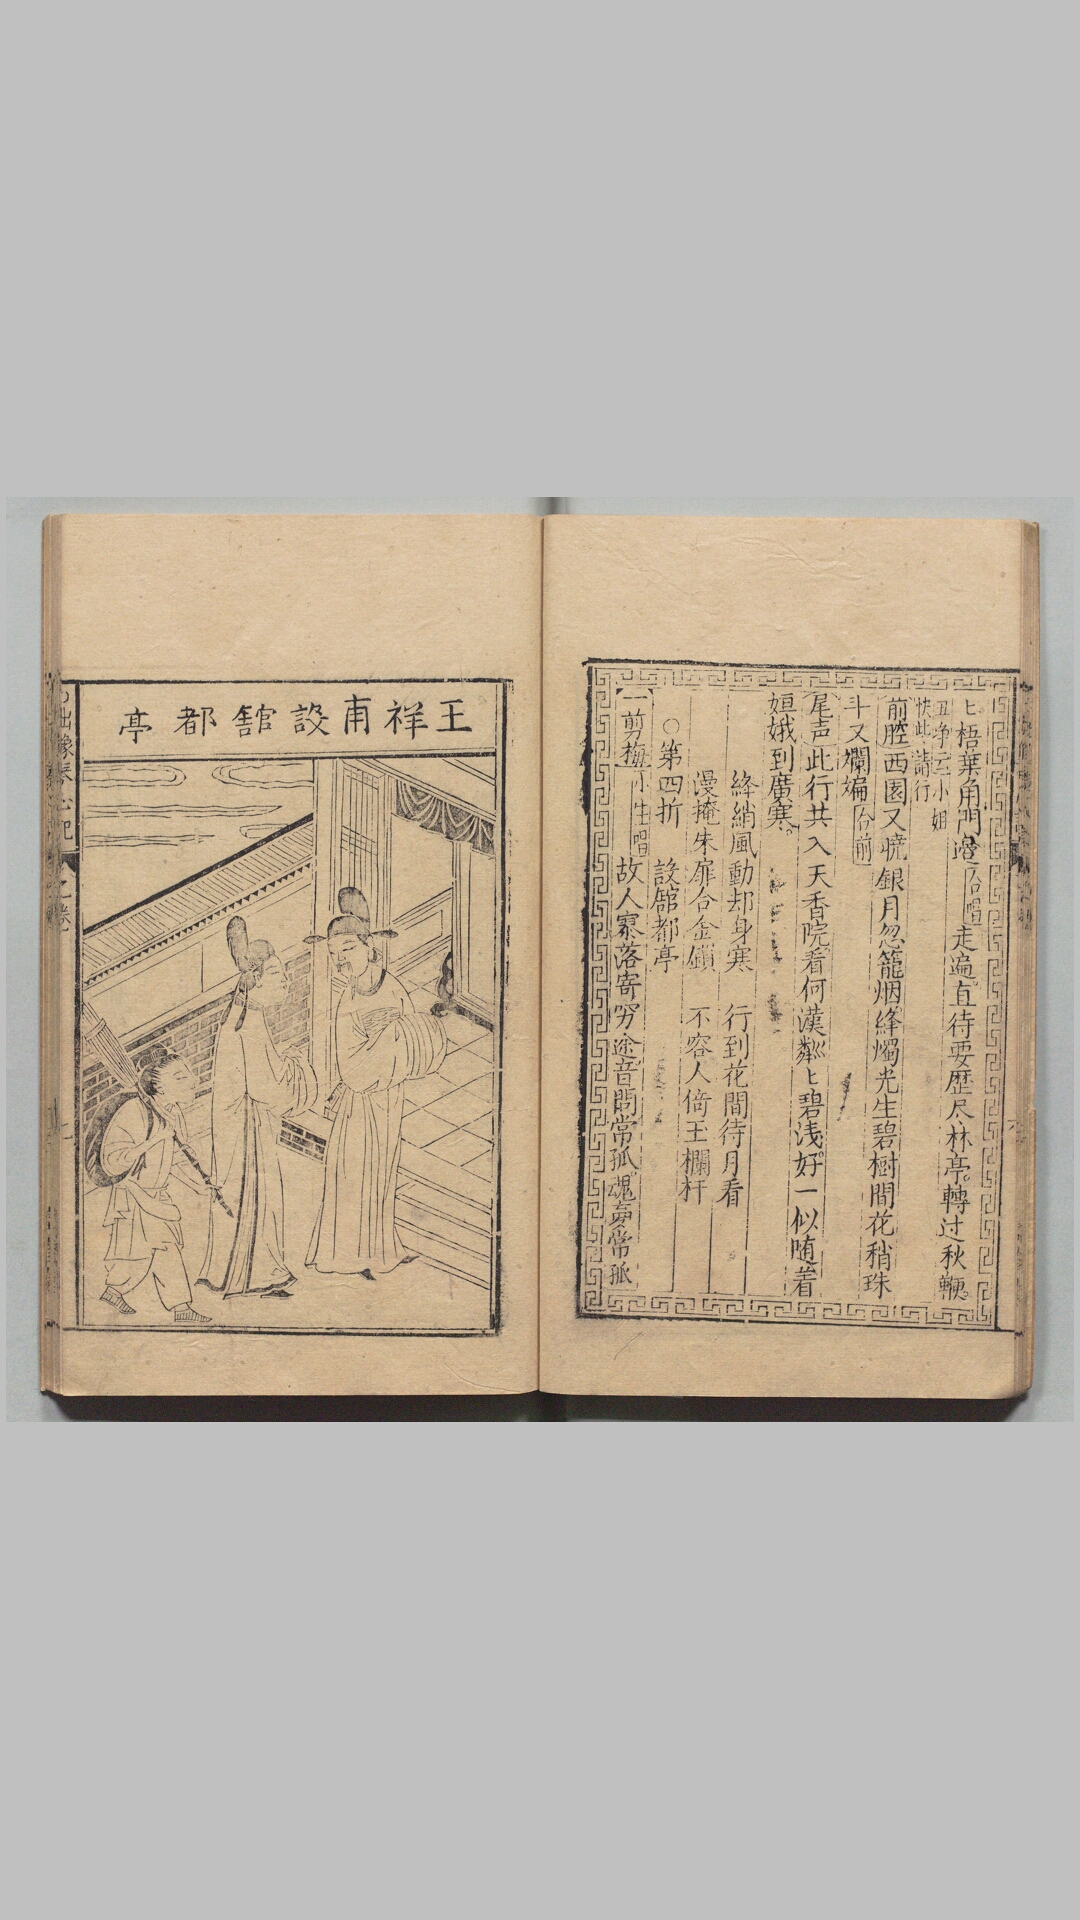 ヒ梧葉角門邊合唱走遍直待要歴尽林亭轉过秋轣
丑净云小姐
快此請行
前腔西園又晓銀月忽籠烟絳燭光生碧樹間花稍珠
斗又斕斒合前
尾声此行共入天香院看何漢粼ヒ碧浅好一似随着
姮娥到廣寒
絳綃風動却身寒 行到花間待月看
漫掩朱扉合金鎖 不容人倚玉欄杆
○第四折 設舘都亭
一剪梅小生唱故人寥落寄穷途音問常孤魂夢常孤
王祥甫設舘都亭
出像琴心記 之卷